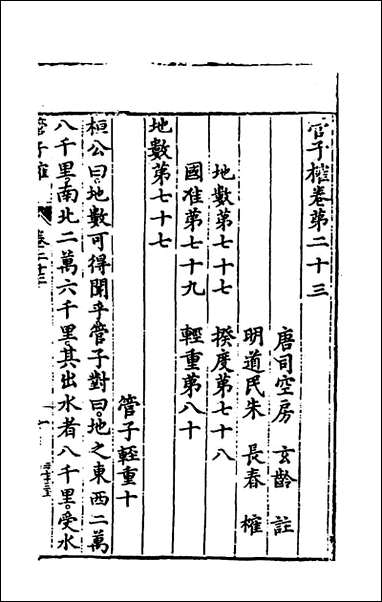 管子榷卷第二十三
唐司空房 玄齡 註
明道民朱 長春 榷
地數第七十七 揆度第七十八
國准第七十九 輕重第八十
地數第七十七
管子輕重十
桓公曰地數可得聞乎管子對曰地之東西二萬
八千里南北二萬六千里其出水者八千里受水
管子榷 卷二十三